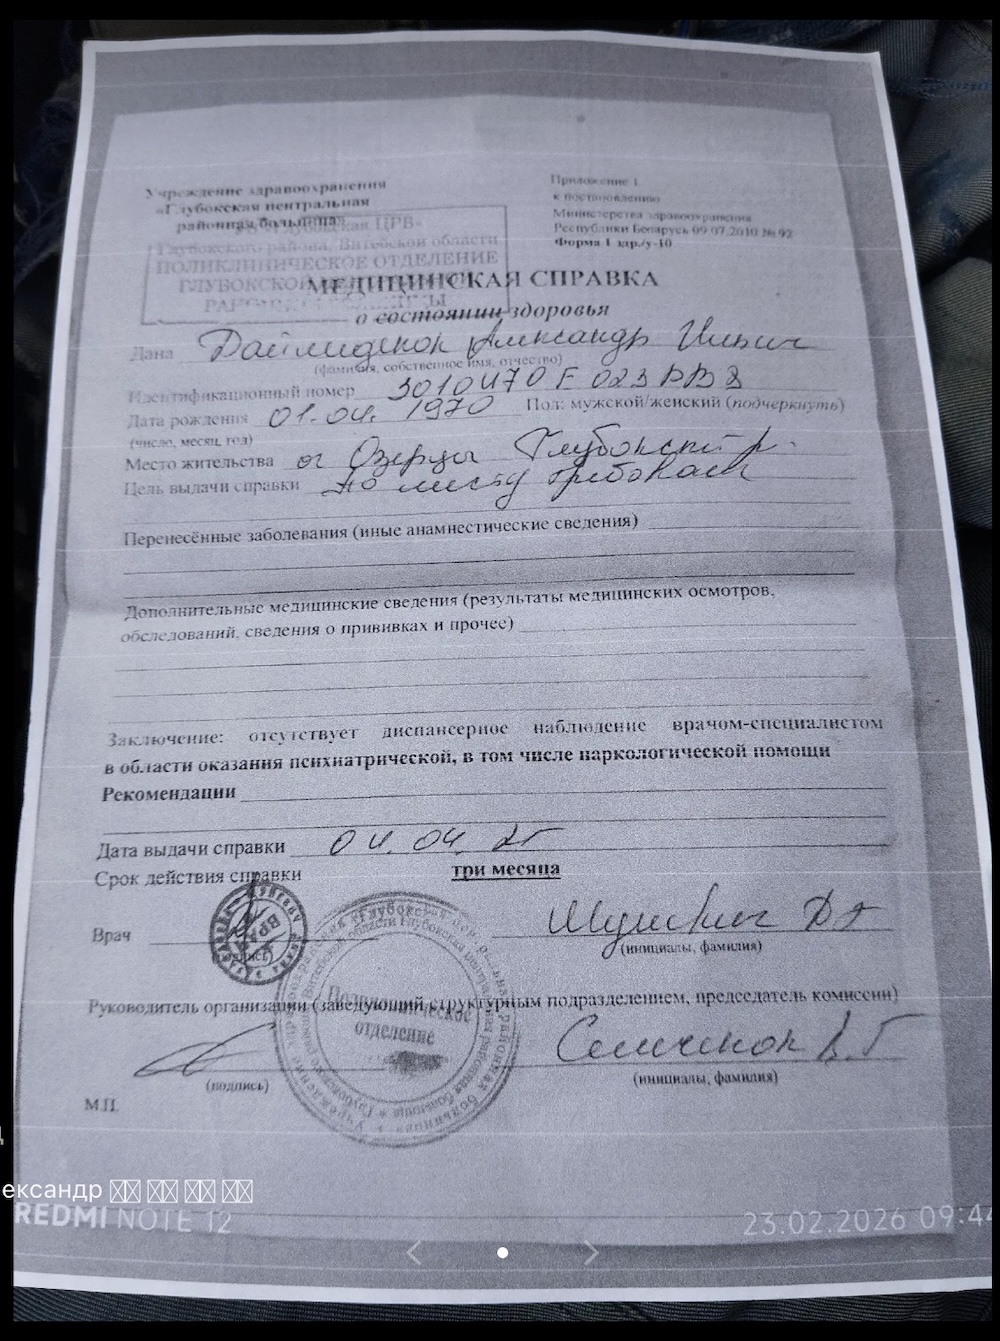 Учреждение здравоохранения
«Глубокская центральная
районная больница»
Приложение 1
к постановлению
Министерства здравоохранения
Республики Беларусь 09.07.2010 № 92
Форма 1 здр./у-10
Глубокского района, Витебской области
ПОЛИКЛИНИЧЕСКОЕ ОТДЕЛЕНИЕ
МЕДИЦИНСКАЯ СПРАВКА
о состоянии здоровья
Дана Дайлиденок Александр Ильич
(фамилия, собственное имя, отчество)
Идентификационный номер 3010470 Е 023 РВ 8
Дата рождения 01.04. 1970 Пол: мужской/женский (подчеркнуть)
(число, месяц, год)
Место жительства аг Озерцы Глубокский р-
Цель выдачи справки по месту требован
Перенесённые заболевания (иные анамнестические сведения)
Дополнительные медицинские сведения (результаты медицинских осмотров,
обследований, сведения о прививках и прочее)
Заключение: отсутствует диспансерное наблюдение врачом-специалистом
в области оказания психиатрической, в том числе наркологической помощи
Рекомендации
Дата выдачи справки 04.04.
Срок действия справки три месяца
Врач
(инициалы, фамилия)
Руководитель организации (заведующий структурным подразделением, председатель комиссии)
Поликлиническое
отделение
Семченок В.Г
(подпись) (инициалы, фамилия)
М.П.
ександр
REDMI NOTE 12
23.02.2026 09:44